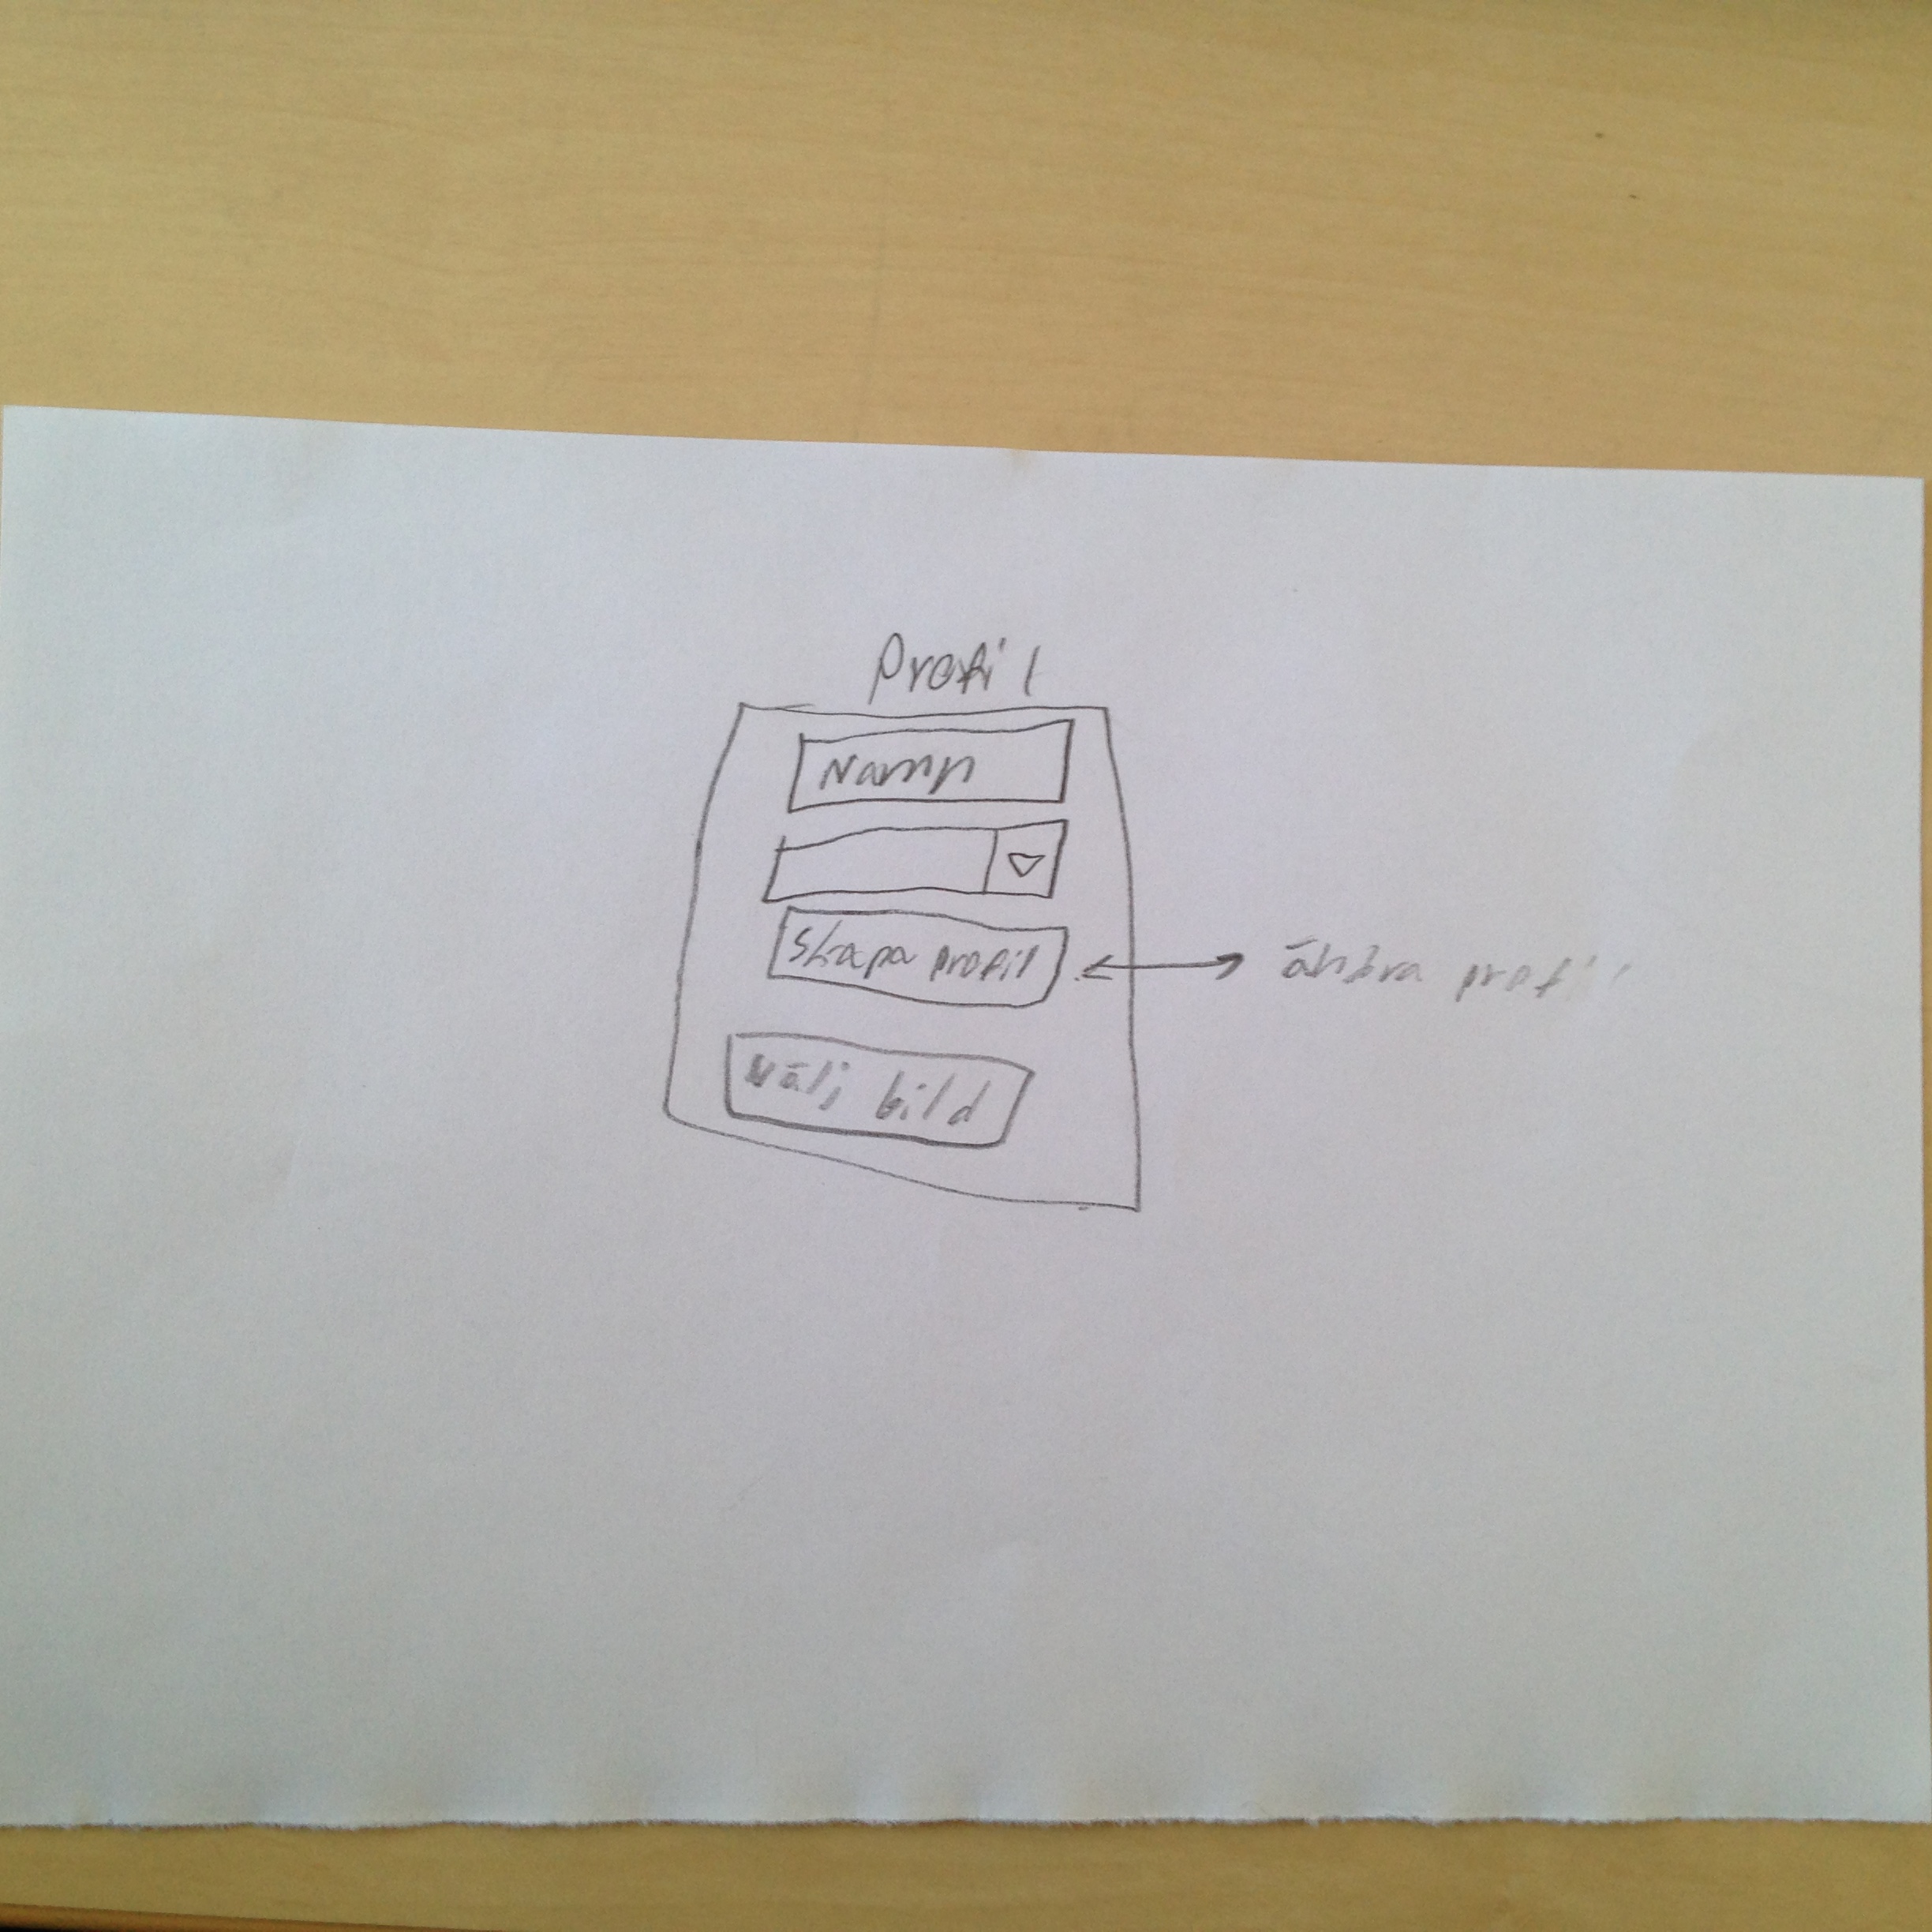 Profil
Namn
Skapa profil
ändra profil
Välj bild